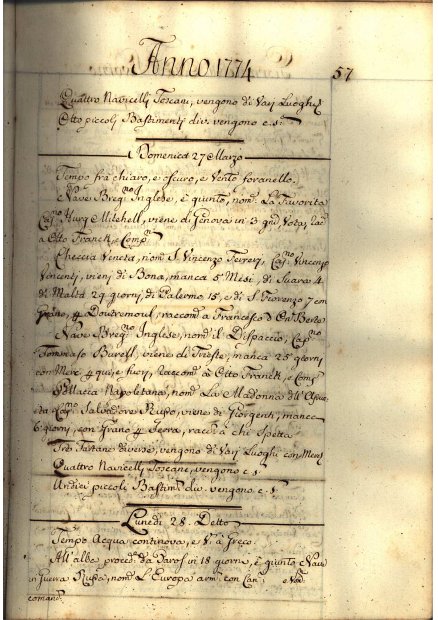 Anno 1774
57
Quattro Navicelli Toscani, vengono di Varj Luoghi
Otto piccoli Bastimenti div. vengono c. s.
Domenica 27 Marzo
Tempo frà chiaro, e oscuro, e Vento foranello
Nave Breg.no Inglese, è giunto, nom.o La Favorita
Cap.no Mitchell, viene di Genova in 3 gni, Vota, rac.
a Otto Franck, e Comp.ni
Checcia Veneta, nom. S. Vincenzo Ferreri, Cap.no Vincenzo
Vincenti, vieni di Bona, manca 5 Mesi, di 4
di Malta 29 giorni, di Palermo 15, e di S. Fiorenzo 7 con
Grano, p Doutremoul, raccom. a Francesco
Nave Breg.no Inglese, nom. il Dispaccio, Cap.no
Tommaso Burell, viene di Trieste, manca 25 giorni
con Merc. p qui, e fuori, Raccom. à Otto Franck, e Comp.
Pollacca Napoletana, nom. La Madonna dell'
Cap.no Salvadore Russo, viene di Giorgenti, manca
6 giorni, con Grano p Genova, rac. à chi spetta
Tre Tartane diverse, vengono di Varj Luoghi con Merc.
Quattro Navicelli Toscani, vengono c. s.
Undici piccoli Bastim.ti div. vengono c. s.
Lunedi 28. Detto
Tempo Acqua continova, e V. à Greco
All'alba proced. da in 18 giorni, è giunta Nave
in Guerra Russa, nom. L'Europa arm. con Can.
comand.